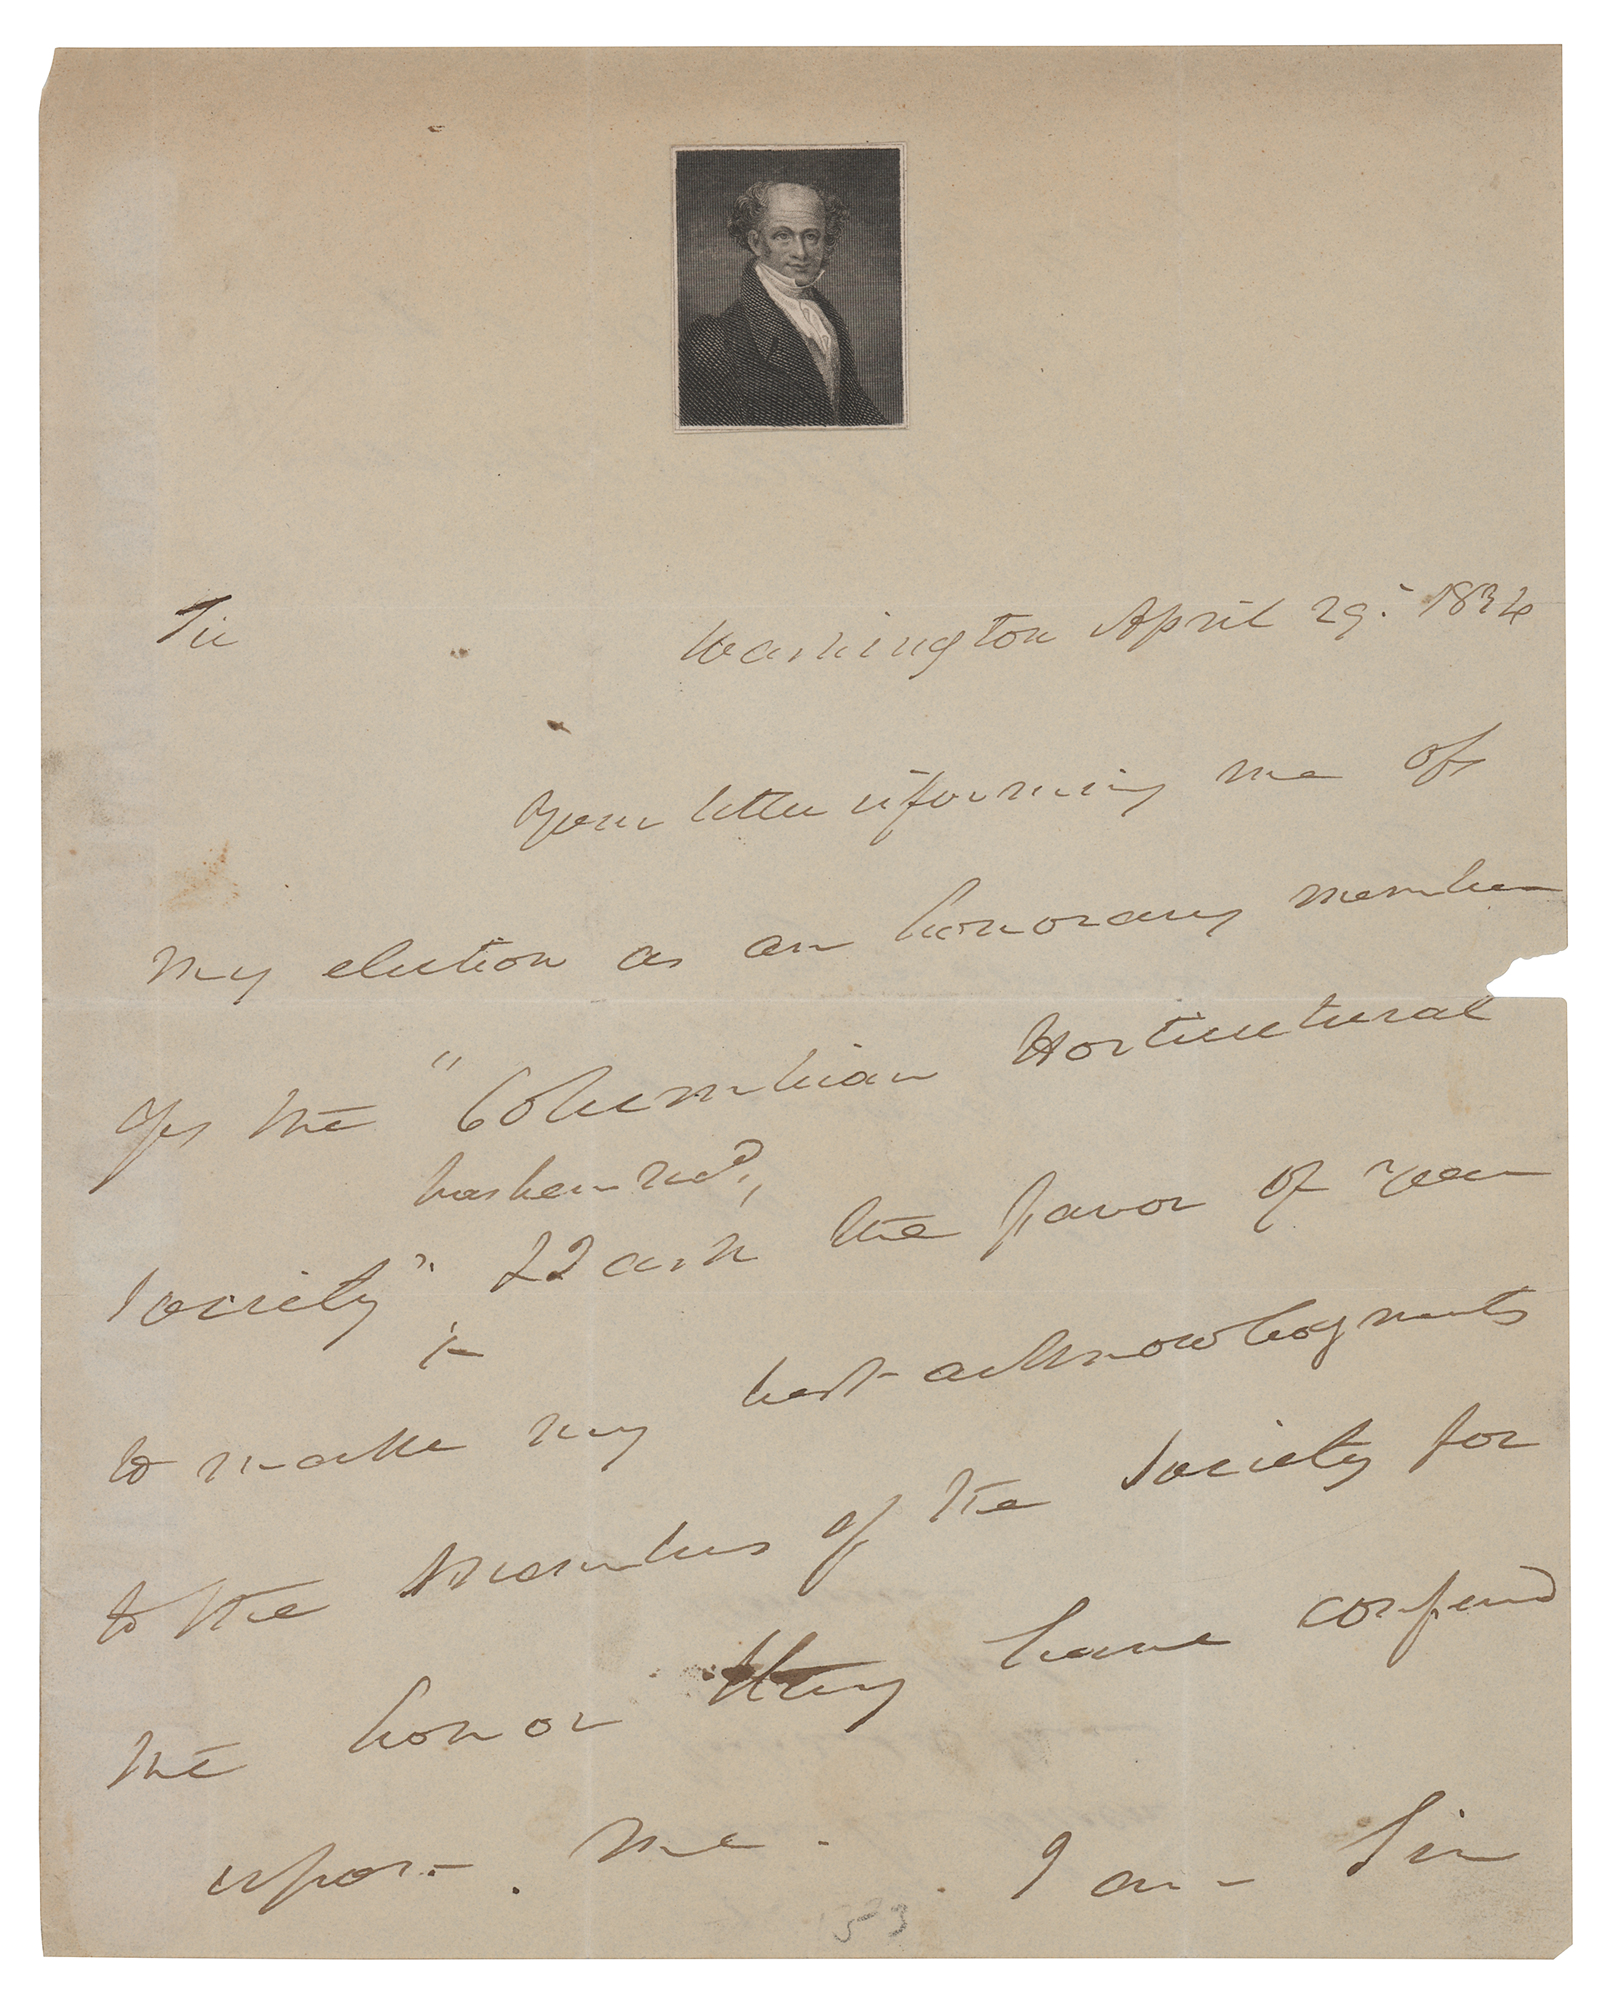 Sir
Washington April 29. 1834
Your letter informing me of
my election as an honorary member
of the "Columbian Horticultural
has been recd,
Society" I ask the favor of you
to make my best acknowledgments
to the Members of the Society for
the honor they have conferred
upon me. I am Sir
53